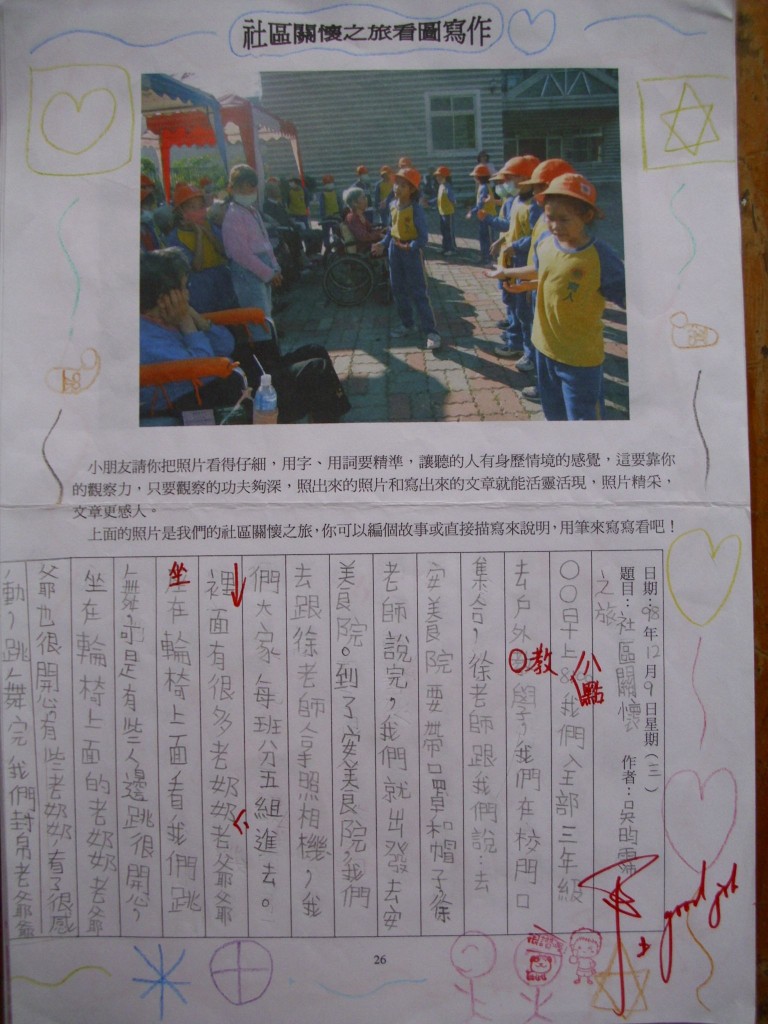 社區關懷之旅看圖寫作
小朋友請你把照片看得仔細，用字、用詞要精準，讓聽的人有身歷情境的感覺，這要靠你
的觀察力，只要觀察的功夫夠深，照出來的照片和寫出來的文章就能活靈活現，照片精采，
文章更感人。
上面的照片是我們的社區關懷之旅，你可以編個故事或直接描寫來說明，用筆來寫寫看吧！
日期：98年12月9日星期（三）
題目：社區關懷之旅 作者：吳昀霈
○○早上8點我們全部三年級
去戶外教學，我們在校門口
集合，徐老師跟我們說：去
安美良院要帶口罩和帽子徐
老師說完，我們就出發去安
美良院。到了安美良院，我們
去跟徐老師拿照相機，我
們大家每班分五組進去。
裡面有很多老奶奶老爺爺
坐在輪椅上面看我們跳
舞可是有些人邊跳很開心，
坐在輪椅上面的老奶奶老爺
爺也很開心，有些老奶奶看了很感
動，跳舞完我們封帛老爺爺
教
八點
坐
good
26